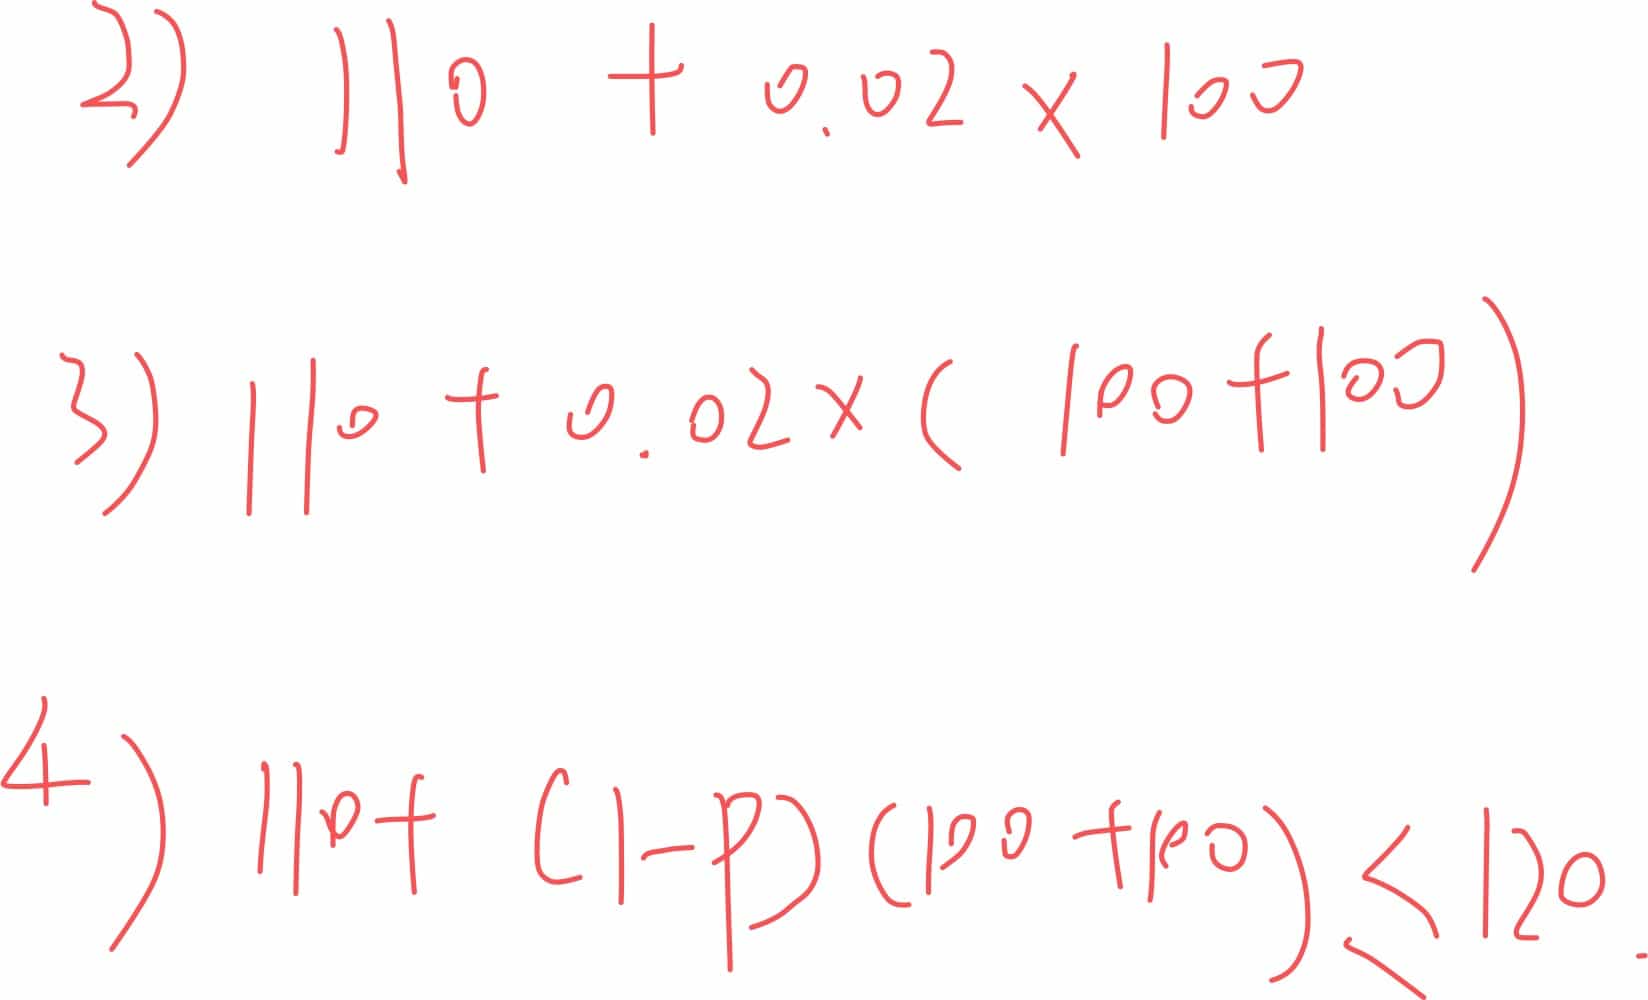 2) 110 + 0.02 × 100
3) 110 + 0.02 × (100 + 100)
4) 110 + (1 - p) (100 + 100) ≤ 120.